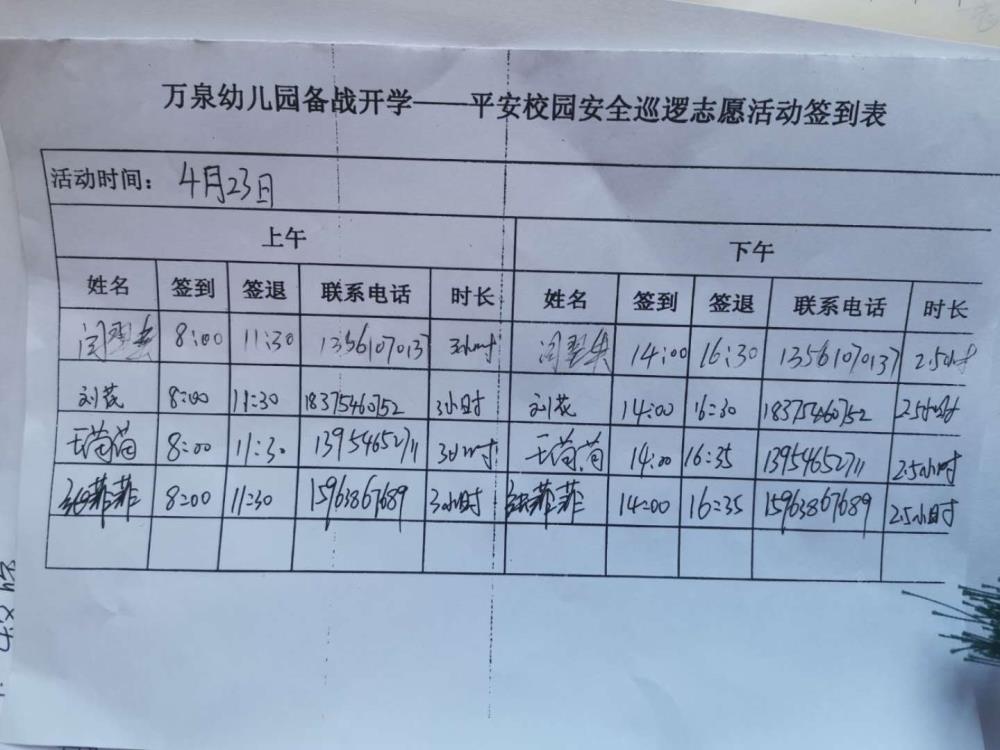 万泉幼儿园备战开学——平安校园安全巡逻志愿活动签到表
活动时间： 4月23日
上午 下午
姓名 签到 签退 联系电话 时长 姓名 签到 签退 联系电话 时长
8:00 11:30 13561070137 3小时 14:00 16:30 13561070137 2.5小时
刘花 8:00 11:30 18375460752 3小时 刘花 14:00 16:30 18375460752 2.5小时
王苘苘 8:00 11:30 13954652711 3小时 王苘苘 14:00 16:35 13954652711 2.5小时
张菲菲 8:00 11:30 15963867689 3小时 张菲菲 14:00 16:35 15963867689 2.5小时